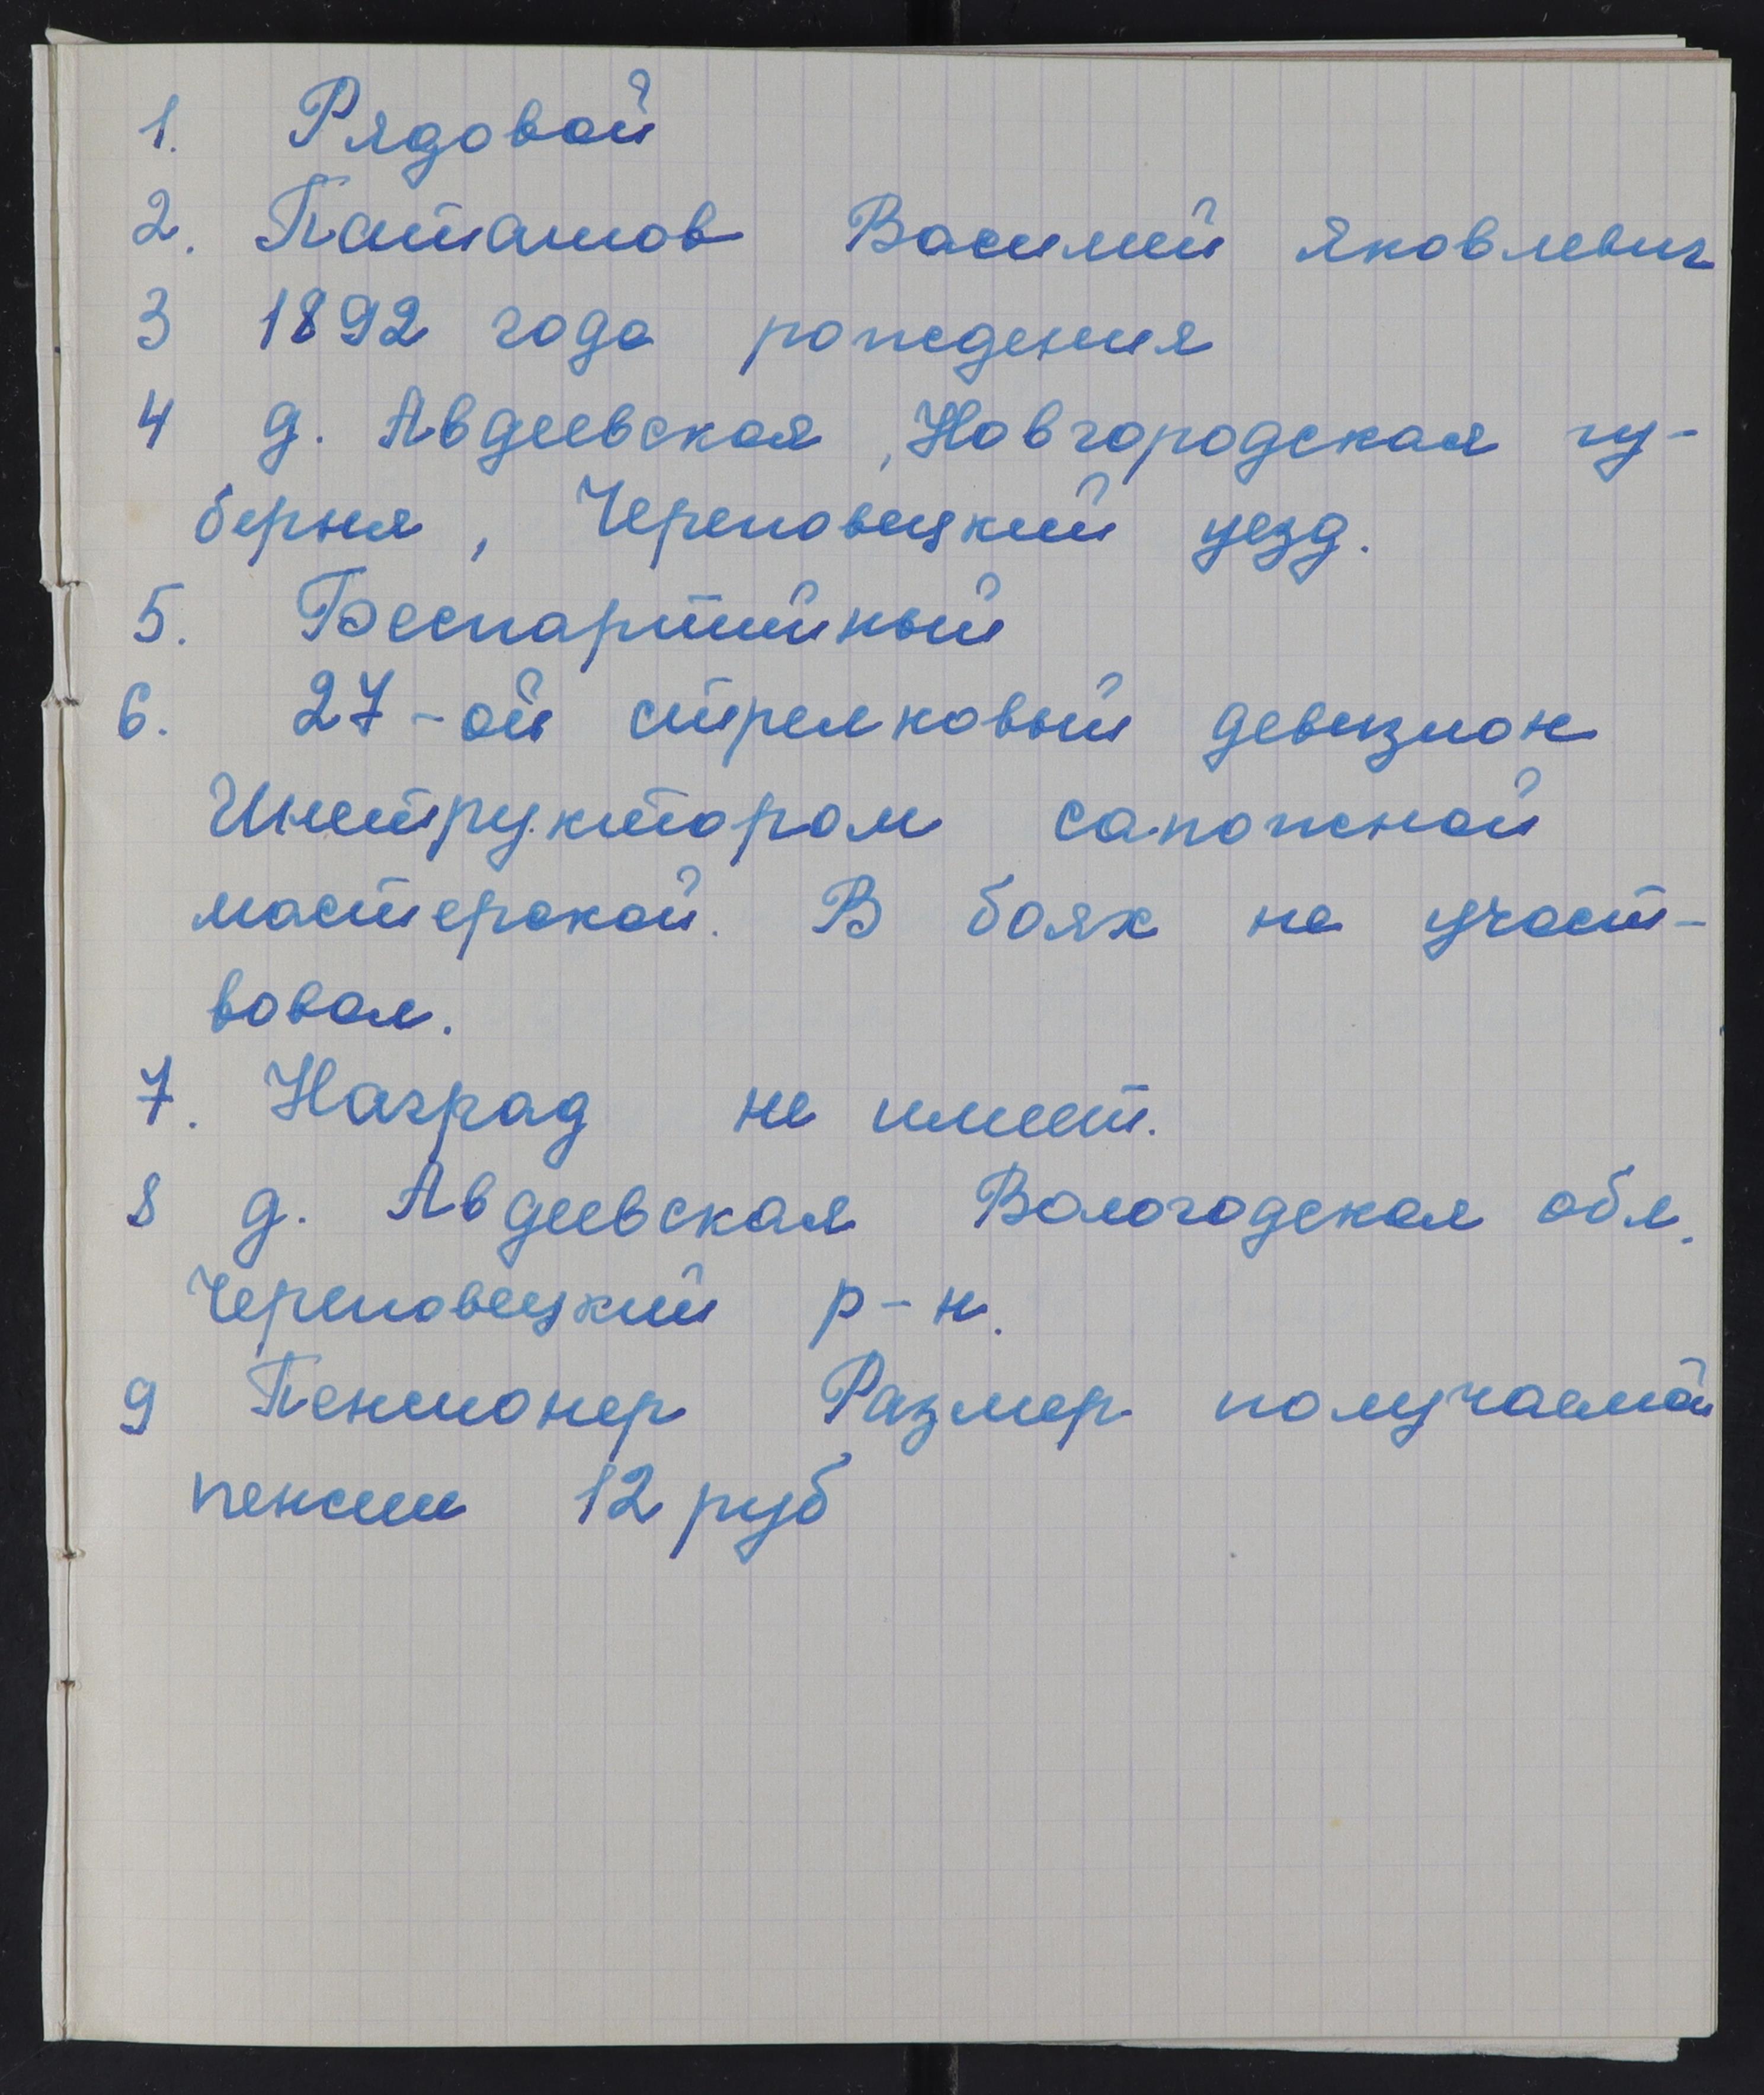 1. Рядовой
2. Паташов Василий Яковлевич
3 1892 года рождения
4 д. Авдеевская, Новгородская гу-
берня, Череповецкий уезд.
5. Беспартийный
6. 27-ой стрелковый девизион
Инструктором сапожной
мастерской. В боях не участ-
вовал.
7. Наград не имеет.
8 д. Авдеевская Вологодская обл.
Череповецкий р-н.
9 Пенсионер Размер получаемой
пенсии 12 руб